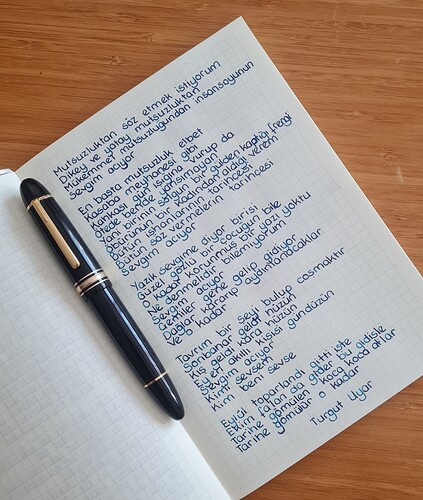 Mutsuzluktan söz etmek istiyorum
Dikey ve yatay mutsuzluktan
Mükemmel mutsuzluğundan insansoyunun
Sevgim acıyor
En başta mutsuzluk elbet
Kasaba meyhanesi gibi
Kahkahası gün ışığına vurup da
Ötede beride yansımayan
Yani birinin solgun bir gülden kaptığı frengi
Öbürünün bir kadından aldığı verem
Bütün işhanlarının tarihçesi
Bütün söz vermelerin tarihçesi
Sevgim acıyor
Yazık sevgime diyor birisi
Güzel gözlü bir çocuğun bile
O kadar korunmuş bir yazı yoktu
Ne denmelidir bilemiyorum
Sevgim acıyor
Gemiler gene gelip gidiyor
Dağlar kararıp aydınlanacaklar
Ve o kadar
Tavrım bir şeyi bulup coşmaktır
Sonbahar geldi hüzün
Kış geldi kara hüzün
Ey en akıllı kişisi gündüzün
Sevgim acıyor
Kimi sevsem
Kim beni sevse
Eylül toparlandı gitti işte
Ekim falan da gider bu gidişle
Tarihe gömülen koca koca atlar
Tarihe gömülür o kadar
Turgut Uyar